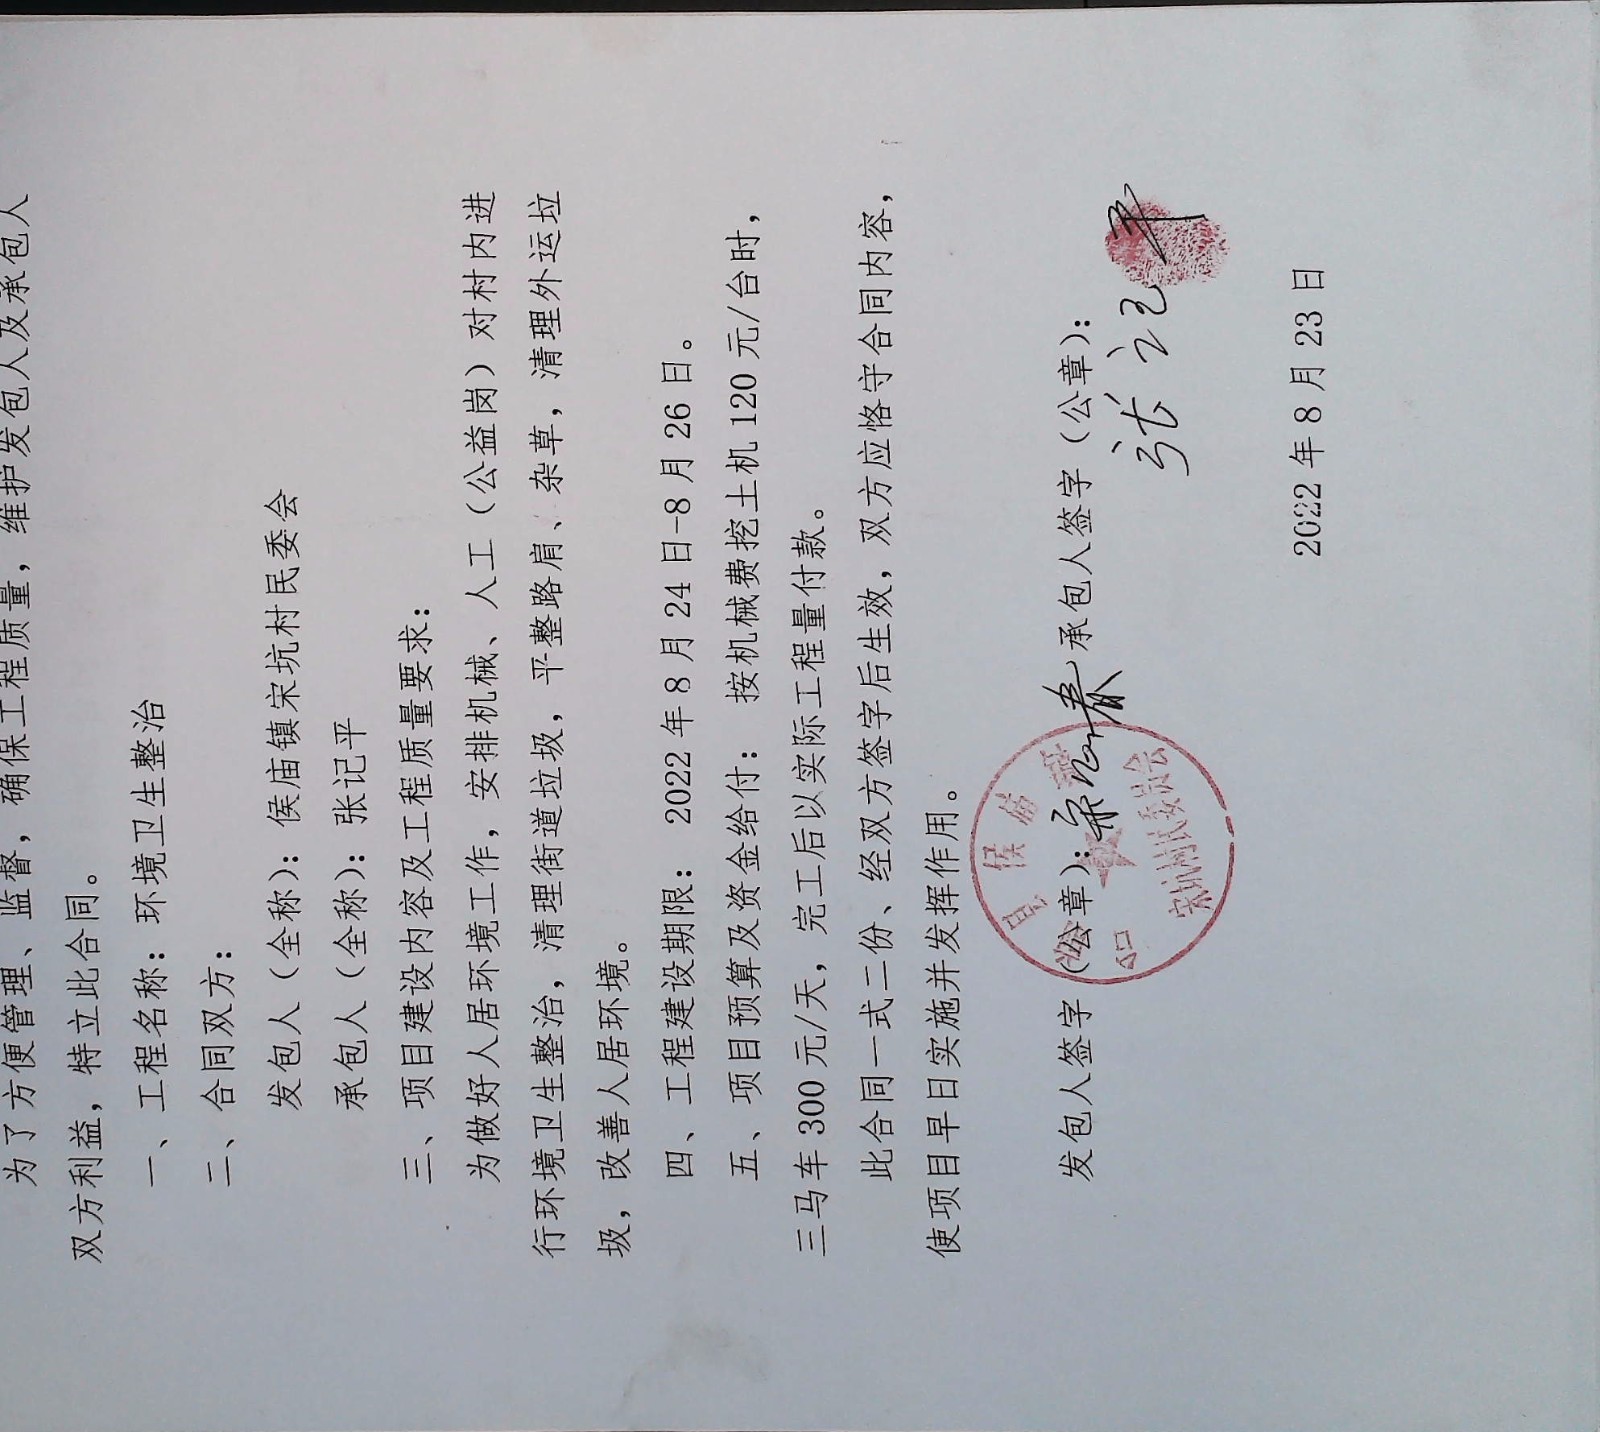 为了方便管理、监督，确保工程质量，维护发包人及承包人
双方利益，特立此合同。
一、工程名称：环境卫生整治
二、合同双方：
发包人（全称）：侯庙镇宋坑村民委会
承包人（全称）：张记平
三、项目建设内容及工程质量要求：
为做好人居环境工作，安排机械、人工（公益岗）对村内进
行环境卫生整治，清理街道垃圾，平整路肩、杂草，清理外运垃
圾，改善人居环境。
四、工程建设期限： 2022 年 8 月 24 日-8 月 26 日。
五、项目预算及资金给付： 按机械费挖土机 120 元/台时，
三马车 300 元/天，完工后以实际工程量付款。
此合同一式二份、经双方签字后生效，双方应恪守合同内容，
使项目早日实施并发挥作用。
发包人签字（公章）： 承包人签字（公章）：
张记平
县侯庙镇
宋坑村民委员会
2022 年 8 月 23 日